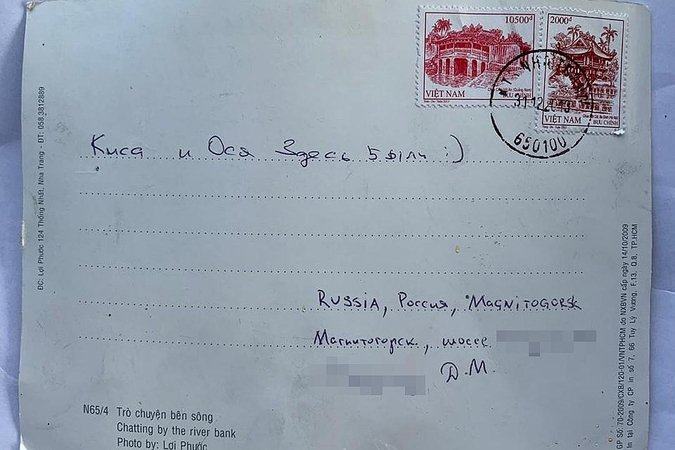 10500đ
2000đ
VIỆT NAM
BƯU CHÍNH
VIỆT NAM
BƯU CHÍNH
31.12
650100
Киса и Ося Здесь были :)
RUSSIA, Россия, MAGNITOGORSK
Магнитогорск, шоссе
Д.М.
N65/4 Trò chuyện bên sông
Chatting by the river bank
Photo by: Lợi Phước
ĐC: Lợi Phước 124 Thống Nhất, Nha Trang - ĐT. 058.3812889
GP Số: 70-2009/CXB/120-01/VNTPHCM do NXBVN cấp ngày 14/10/2009
In tại Công ty CP in số 7, 66 Tuy Lý Vương, F.13, Q.8, TP.HCM